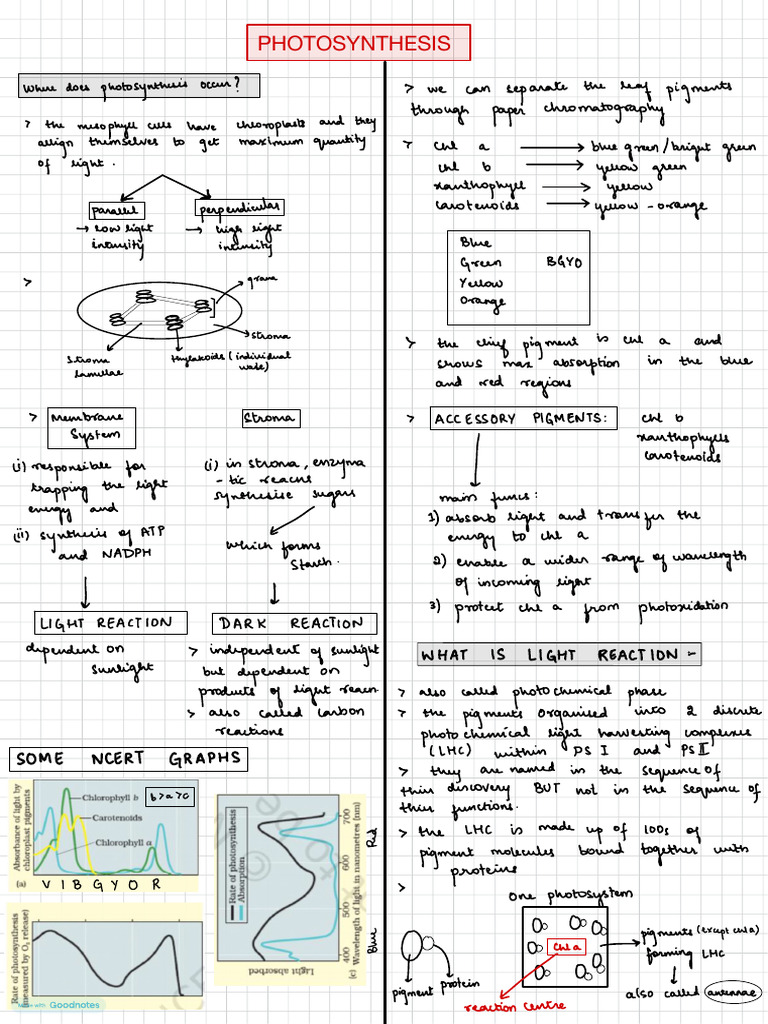 PHOTOSYNTHESIS
Where does photosynthesis occur?
> the mesophyll cells have chloroplasts and they
align themselves to get maximum quantity
of light.
parallel
perpendicular
→ low light
intensity
→ high light
intensity
>
grana
stroma
stroma
lamellae
thylakoids (individual
wale)
> Membrane
System
Stroma
(i) responsible for
trapping the light
energy and
(ii) synthesis of ATP
and NADPH
(i) in stroma, enzyma
-tic reacns
synthesise sugars
which forms
starch.
LIGHT REACTION
DARK REACTION
dependent on
sunlight
> independent of sunlight
but dependent on
products of light reacn
> also called carbon
reactions
SOME NCERT GRAPHS
Absorbance of light by
chloroplast pigments
Chlorophyll b
b > a > c
Carotenoids
Chlorophyll a
(a)
V I B G Y O R
Rate of photosynthesis
(measured by O2 release)
Made with Goodnotes
Rate of photosynthesis
Absorption
Light absorbed
400
500
600
700
(c) Wavelength of light in nanometres (nm)
Blue
Red
> we can separate the leaf pigments
through paper chromatography
> chl a → blue green/bright green
chl b → yellow green
xanthophyll → yellow
carotenoids → yellow-orange
Blue
Green BGYO
Yellow
Orange
> the chief pigment is chl a and
shows max absorption in the blue
and red regions
> ACCESSORY PIGMENTS:
chl b
xanthophylls
carotenoids
main funcs:
1) absorb light and transfer the
energy to chl a
2) enable a wider range of wavelength
of incoming light
3) protect chl a from photoxidation
WHAT IS LIGHT REACTION:-
> also called photochemical phase
> the pigments organised into 2 discrete
photochemical light harvesting complexes
(LHC) within PS I and PS II
> they are named in the sequence of
their discovery BUT not in the sequence of
their functions.
> the LHC is made up of 100s of
pigment molecules bound together with
proteins
>
one photosystem
chl a
pigments (except chl a)
forming LHC
also called antennae
pigment
protein
reaction centre